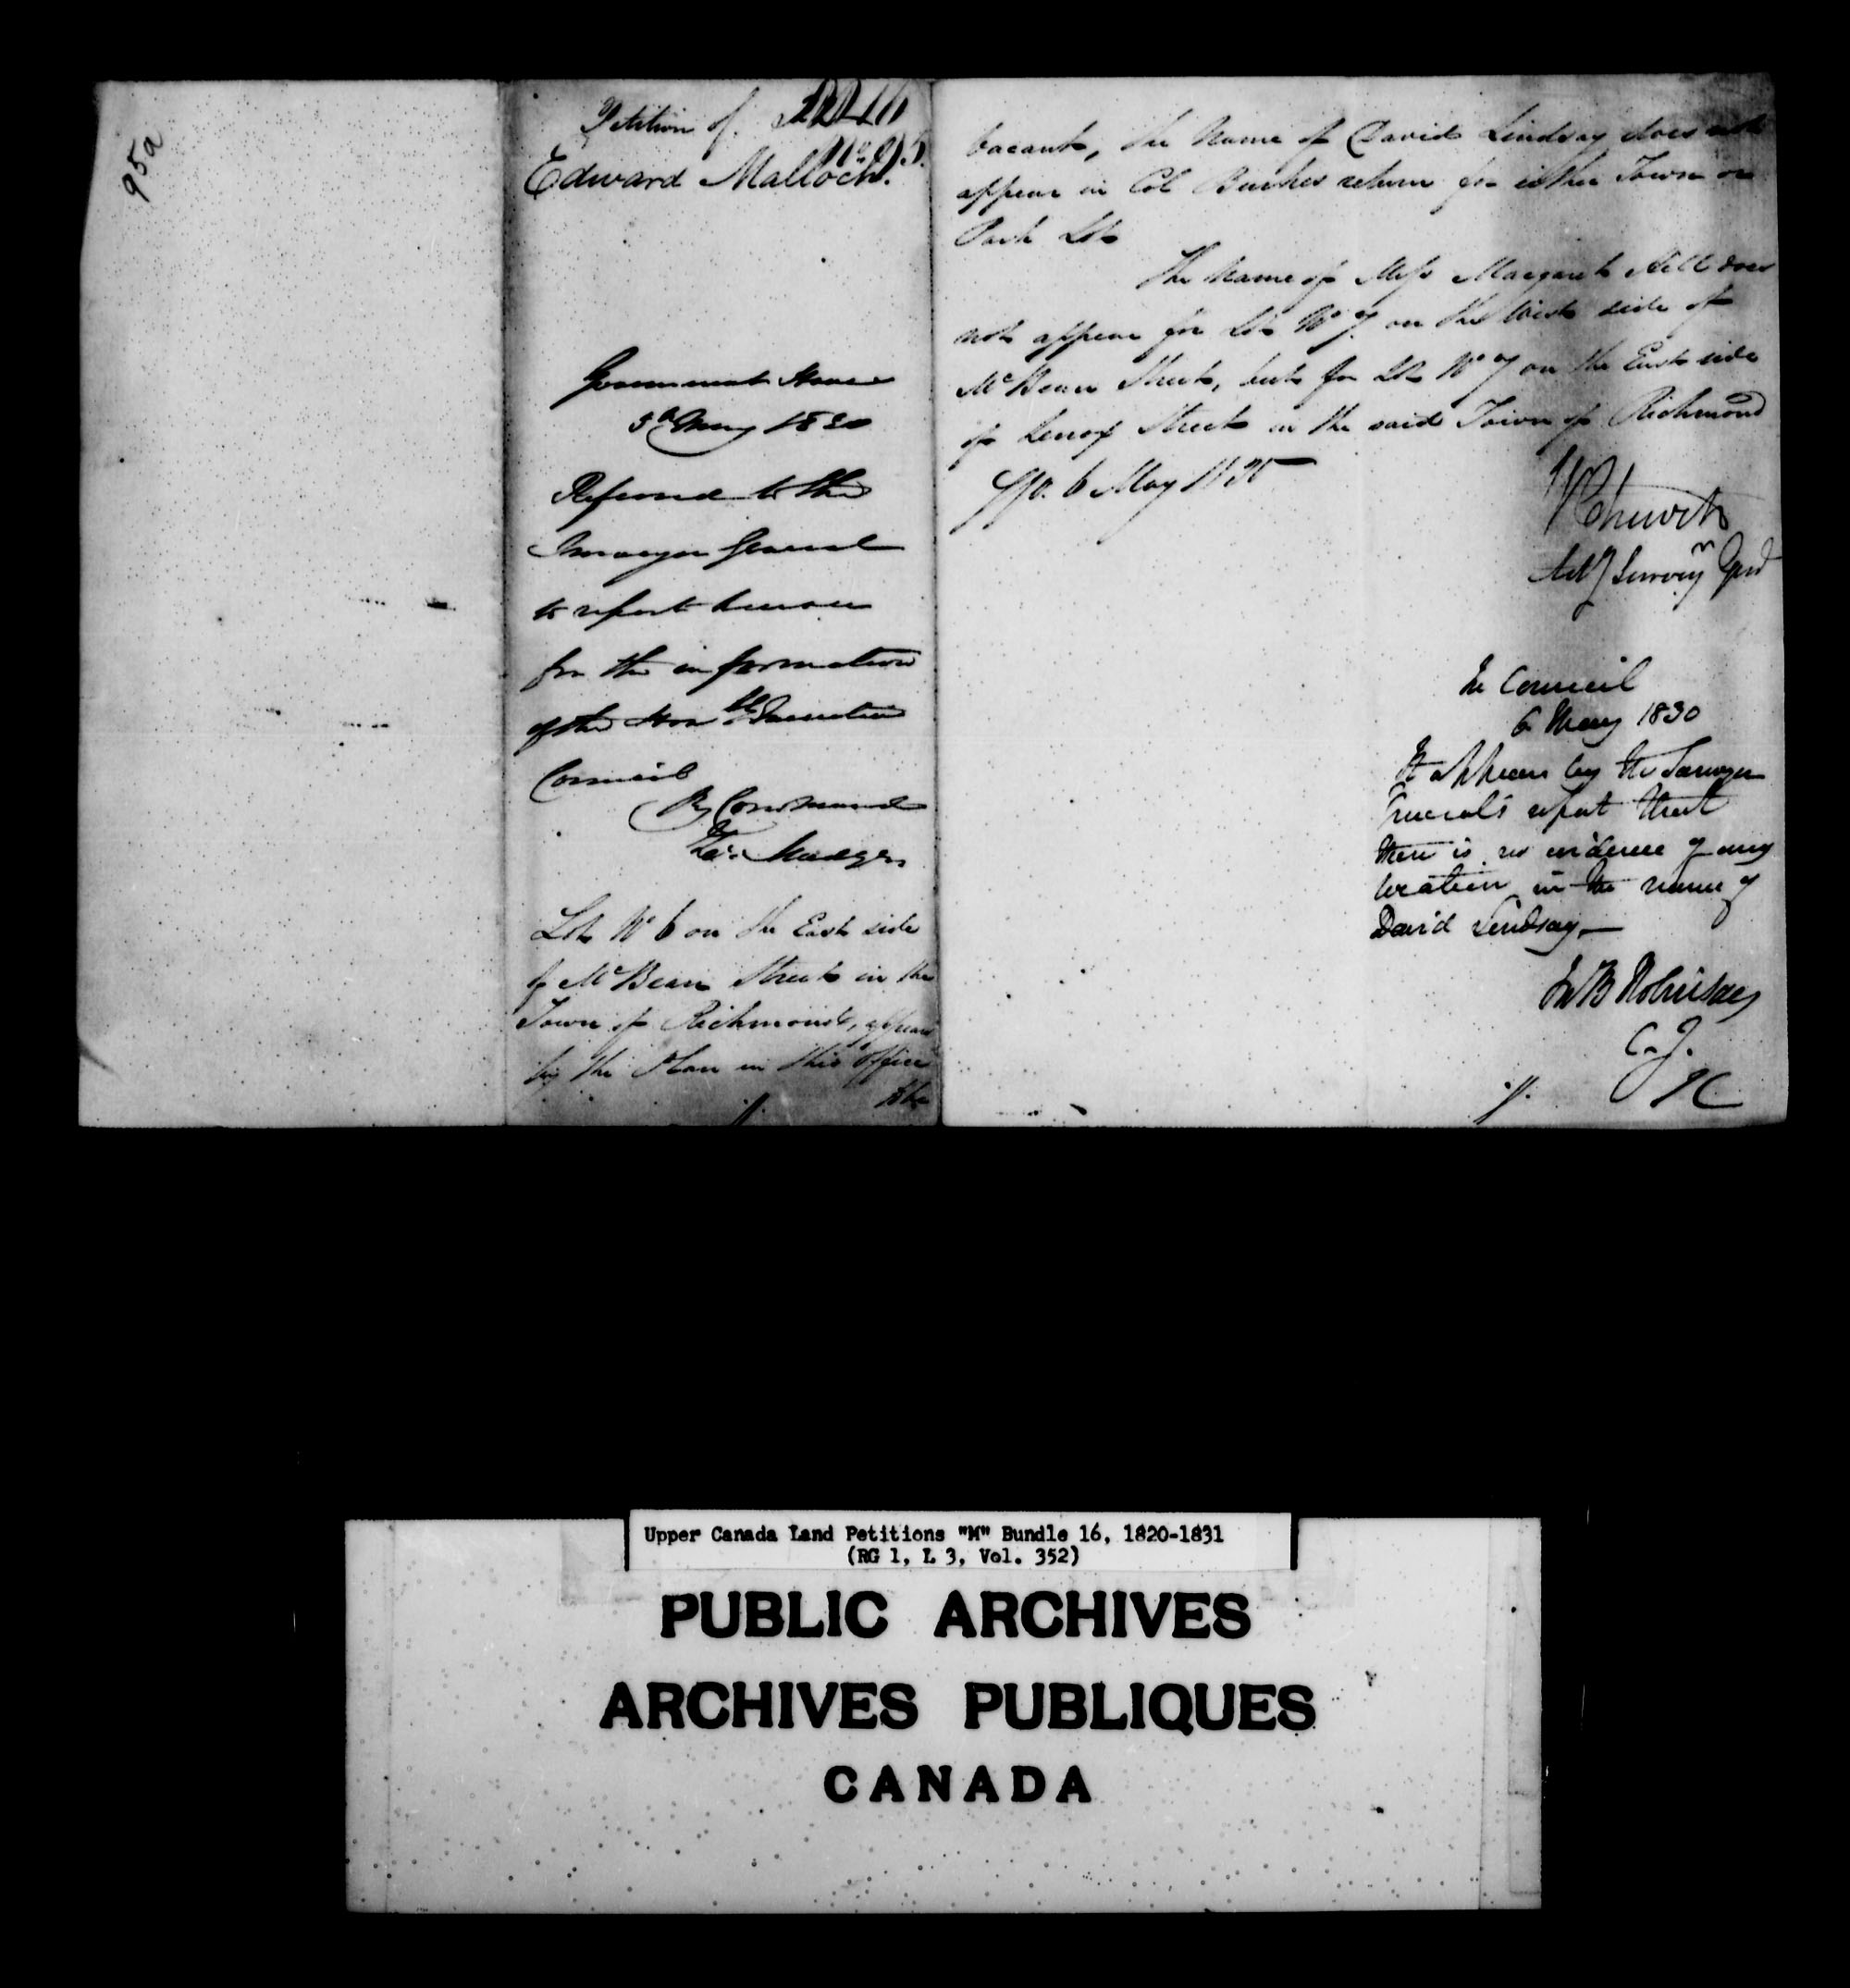 95a
Petition of
No 95.
Edward Malloch.
Government House
5th May 1830
Referred to the
Surveyor General
to report hereon
for the information
of the Honble Executive
Council
By Command
Lot No 6 on the East side
of McBean Street in the
Town of Richmond, appears
by the Plan in this office
vacant, the Name of David Lindsay does not
appear in Col Burkes return for either Town or
Park Lot
The Name of Miss Margaret Hill does
not appear for Lot No 7 on the West side of
McBean Street, but for Lot No 7 on the East side
of Lenox Street in the said Town of Richmond
SGO. 6 May 1830
Chewett
Actg Surveyr Genl
In Council
6 May 1830
It appears by the Surveyor
General's report that
there is no evidence of any
location in the name of
David Lindsay.—
Jn B Robinson
C.J.
Upper Canada Land Petitions "M" Bundle 16, 1820-1831
(RG 1, L 3, Vol. 352)
PUBLIC ARCHIVES
ARCHIVES PUBLIQUES
CANADA